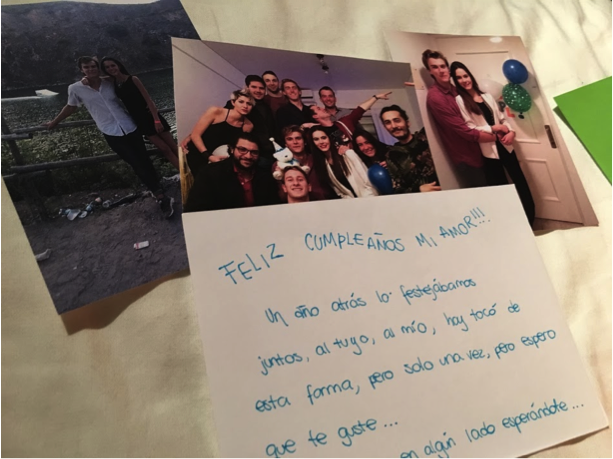 FELIZ CUMPLEAÑOS MI AMOR!!!
Un año atrás lo festejábamos
juntos, al tuyo, al mío, hoy tocó de
esta forma, pero solo una vez, pero espero
que te guste...
en algún lado esperándote...